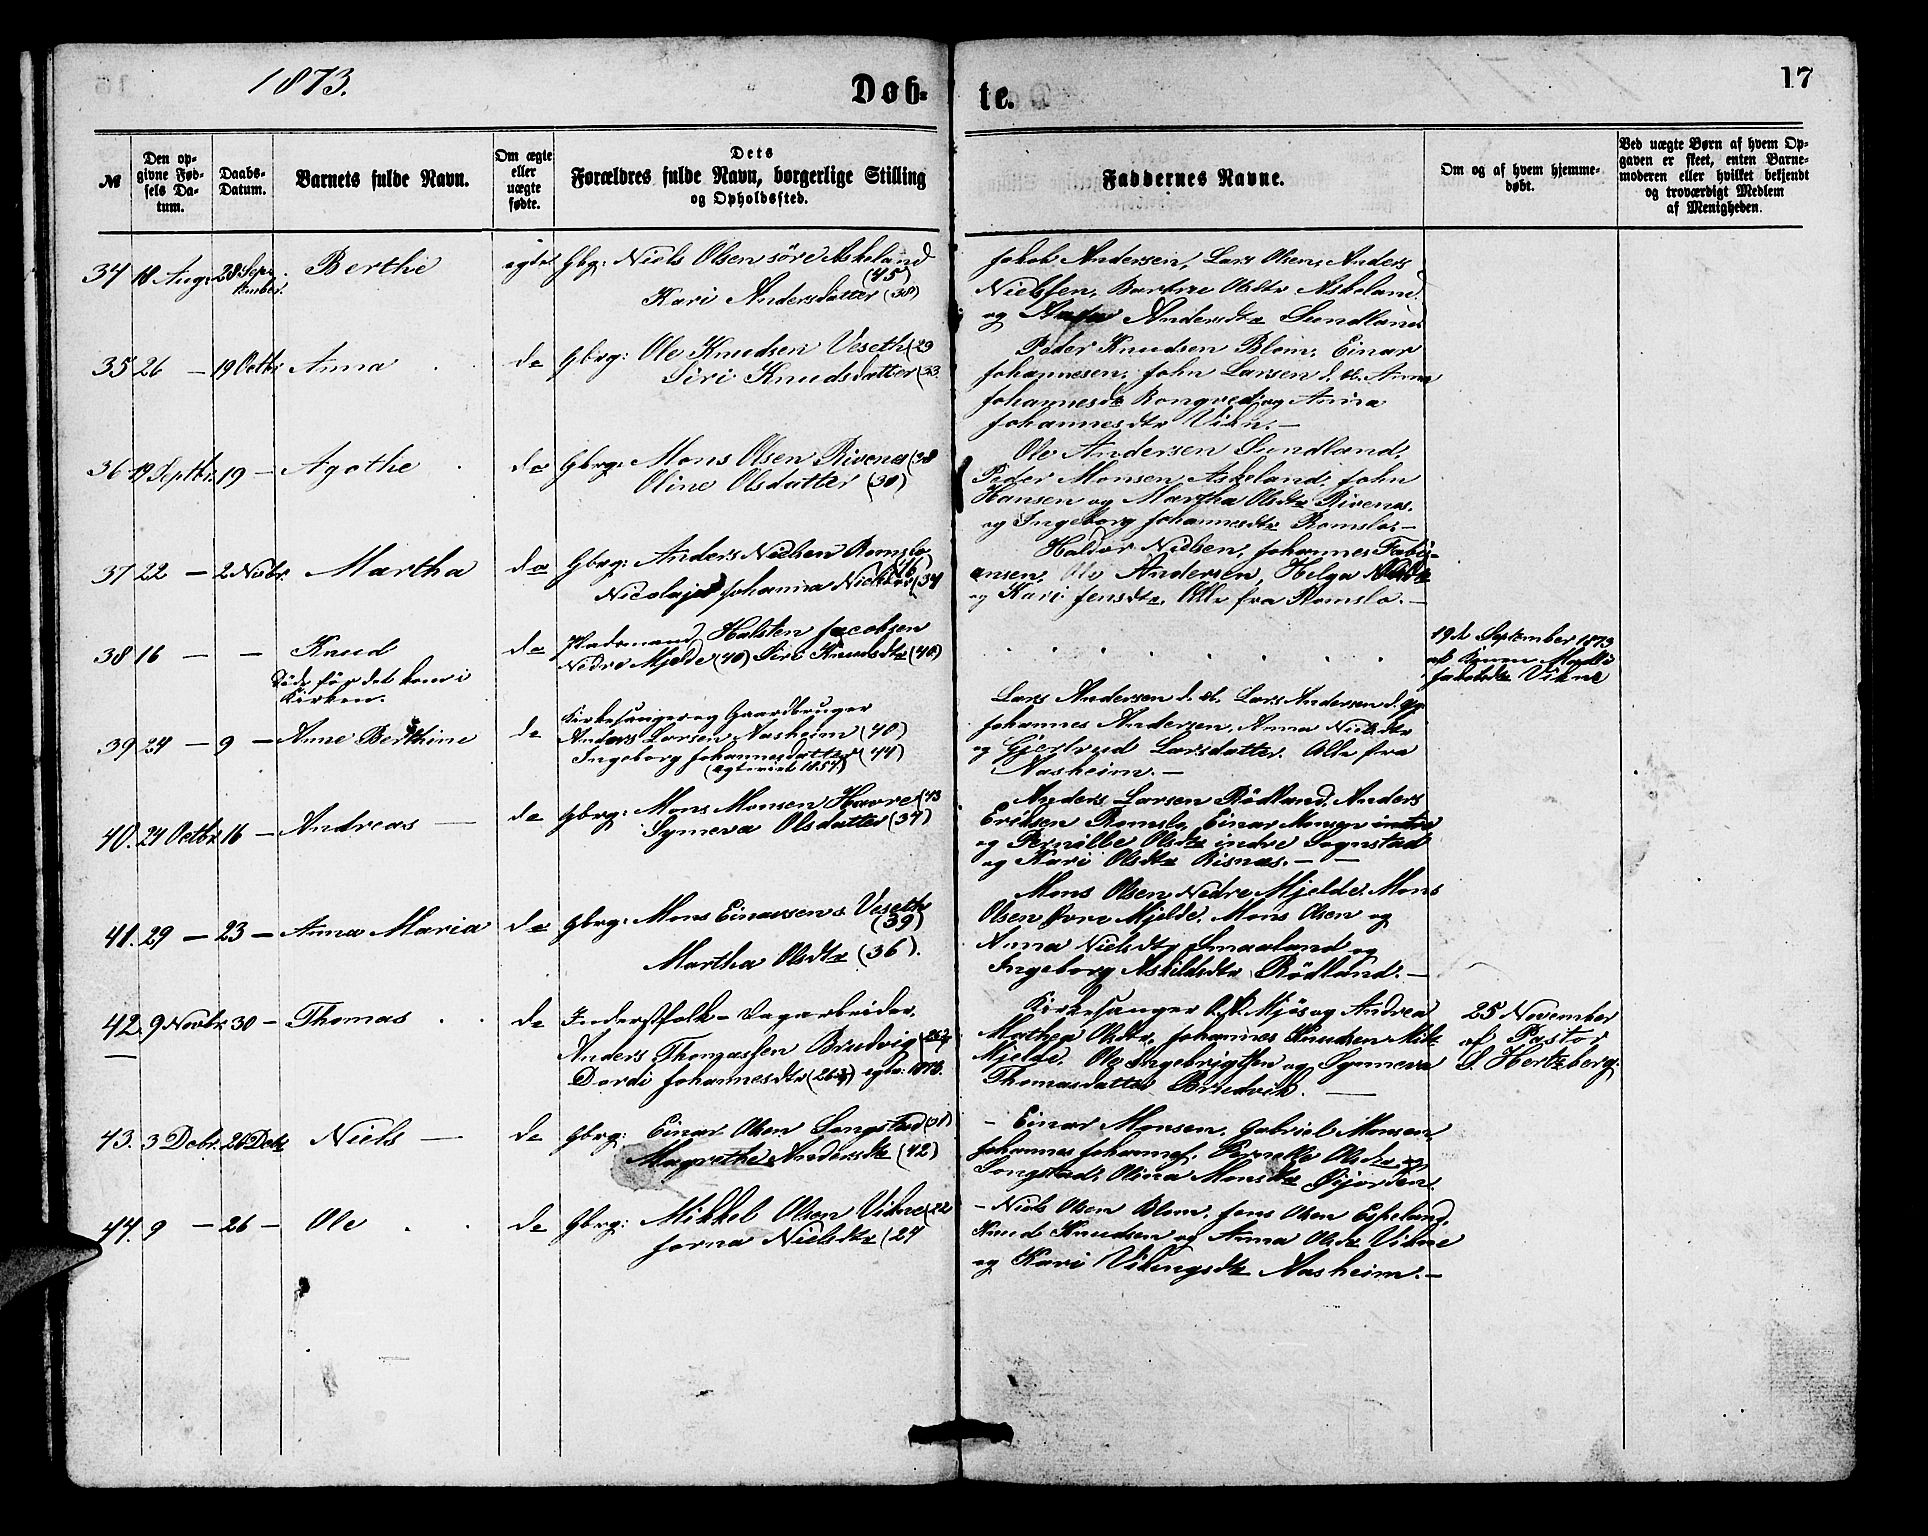 1873.
Døb-
te.
17
№
Den op-
givne Fød-
sels Da-
tum.
Daabs-
Datum.
Barnets fulde Navn.
Om ægte
eller
uægte
fødte.
Dets
Forældres fulde Navn, borgerlige Stilling
og Opholdssted.
Faddernes Navne.
Om og af hvem hjemme-
døbt.
Ved uægte Børn af hvem Op-
gaven er skeet, enten Barne-
moderen eller hvilket bekjendt
og troværdigt Medlem
af Menigheden.
34 18 Aug. 28 September. Berthe egte Gbg: Niels Olsen söre Askeland
(45)
Kari Andersdatter (38)
Jakob Andersen, Lars Olsen, Anders
Nielssen, Olsdtr Askeland
og Andersdtr Sundland
35 26 — 19 Octbr Anna do Gbrg: Ole Knudsen Veseth (29
Siri Knudsdatter (33
Peder Knudsen Blom, Einar
Johannesen, John Larsen d. æ. Anna
Johannesdtr Rongved og Anna
Johannesdtr Vikn. —
36 19 Septbr. 19 — Agathe do Gbrg: Mons Olsen Rivenes (38
Oline Olsdatter (30)
Ole Andersen Sundland,
Peder Monsen Askeland, John
Hansen og Martha Olsdtr Rivenes.
og Ingeborg Johannesdtr Romslo. —
37 22 — 2 Novbr. Martha do Gbrg: Anders Nielsen Romslo
Nicolaja Johanna (34
Haldor Nielsen, Johannes Fabi-
ansen, Ole Andersen, Helga
og Kari Jensdtr. Alle fra Romslo. —
38 16 — — Knud do Pladsmand Halsten Jacobsen
Nedre Mjelde (40) Siri Knudsdtr (40)
Döde før det kom i
Kirken.
19de September 1873
af Konen
Jakobsdtr Vikne
39 24 — 9 — Anne Berthine do Kirkesanger og Gaardbruger
Anders Larsen Aasheim (40)
Ingeborg Johannesdatter (44)
(egteviet 1857)
Lars Andersen d. æ. Lars Andersen d. yg.
Johannes Andersen, Anna Nielsdtr
og Gjertrud Larsdatter. Alle fra
Aasheim. —
40. 24 Octbr 16 — Andreas — do Gbrg: Mons Monsen Havre (43
Synneva Olsdatter (37)
Anders Larsen Rödland, Anders
Eriksen Romslo, Einar Monsen indre
og Pernille Olsdtr indre Songstad
og Kari Olsdtr Risnæs. — —
41. 29 — 23 — Anna Maria do Gbrg: Mons Einarsen Veseth
(39)
Martha Olsdtr (36).
Mons Olsen Nedre Mjelde. Mons
Olsen Mjelde. Mons Olsen og
Anna Nielsdtr Smaaland og
Ingeborg Askildsdtr Rödland. —
42. 9 Novbr 30 — Thomas do Inderstfolk — Dagarbeider,
Anders Thomassen Brudvig
Dordi Johannesdtr egtv: 1873.
Kirkesanger Mjös og Andrea
Mathea Olsdtr, Johannes Knudsen
Mjelde, Ole Ingebrigtsen og Synneva
Thomasdatter Brudvik. —
25 November
af Pastor
Hertzberg.
43. 3 Debr. 26 Debr Niels — do Gbrg: Einar Olsen Songstad
Magrethe Andersdtr (42)
— Einar Monsen, Gabriel Monsen,
Johannes Johannes. Pernelle Olsdtr og
Songstad, Olina Monsdtr Öijorden.
44. 9 — 26 — Ole do Gbrg: Mikkel Olsen Vikne (22
Jorna Nielsdtr (24
— Niels Olsen Blom, Jens Olsen Espeland,
Knud Knudsen og Anna Olsdtr Vikne
og Kari Vikingsdtr Aasheim. —